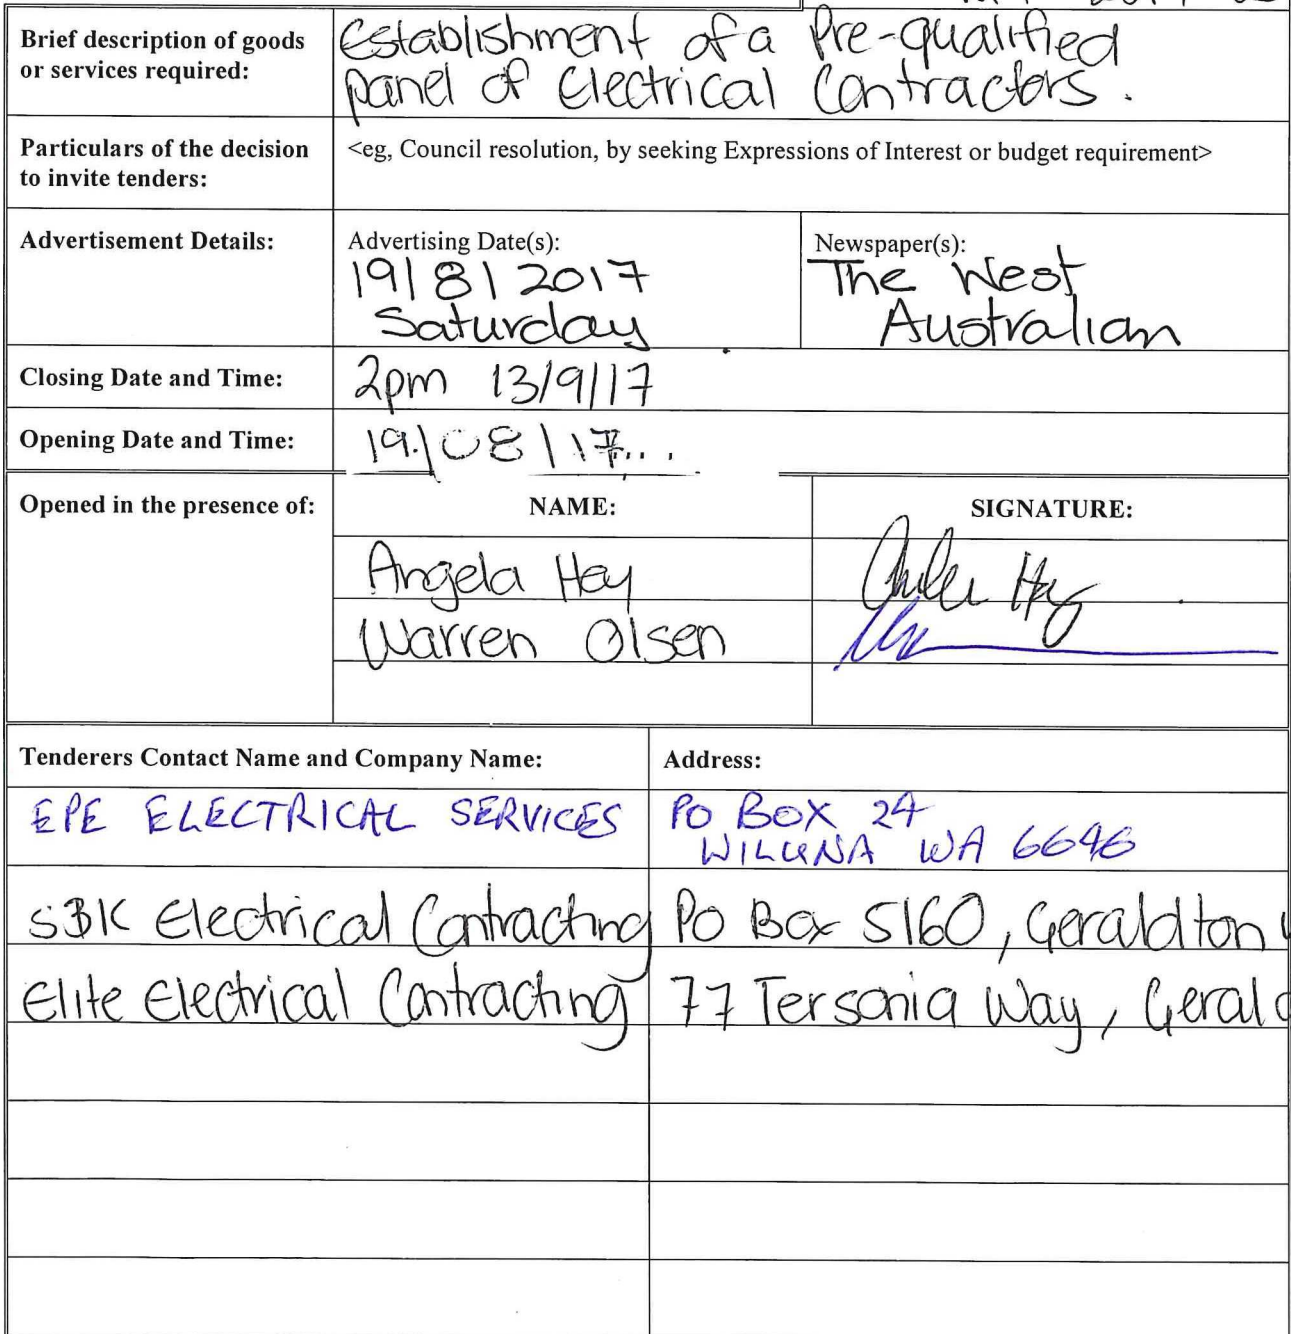 Brief description of goods
or services required:
Establishment of a Pre-qualified
panel of Electrical Contractors.
Particulars of the decision
to invite tenders:
<eg, Council resolution, by seeking Expressions of Interest or budget requirement>
Advertisement Details:
Advertising Date(s):
19/8/2017
Saturday
Newspaper(s):
The West
Australian
Closing Date and Time:
2pm 13/9/17
Opening Date and Time:
19/08/17...
Opened in the presence of:
NAME:
SIGNATURE:
Angela Hay
Warren Olsen
Tenderers Contact Name and Company Name:
Address:
EPE ELECTRICAL SERVICES
PO BOX 24
WILUNA WA 6646
SBK Electrical Contracting
PO Box 5160, Geraldton
Elite Electrical Contracting
77 Tersonia Way, Gerald